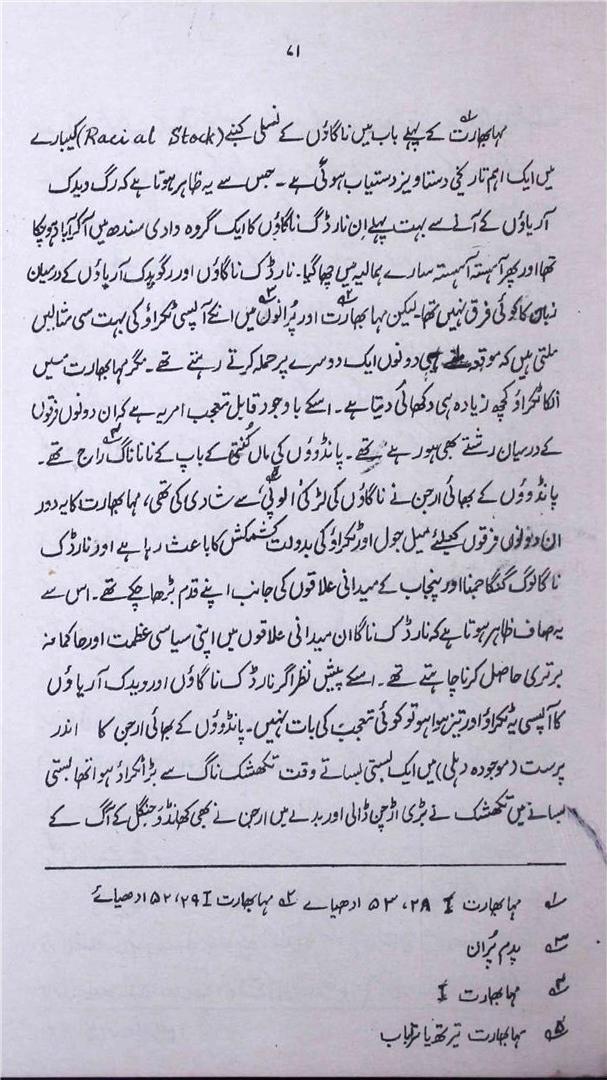 ۷۱
مہا بھارتؔ۱ کے پہلے باب میں ناگاؤں کے نسلی کنبے (Racial Stock) کیبارے
میں ایک اہم تاریخی دستاویز دستیاب ہوئی ہے۔ جس سے یہ ظاہر ہوتا ہے کہ رگ ویدک
آریاؤں کے آنے سے بہت پہلے اِن نارڈک ناگاؤں کا ایک گروہ وادی سندھ میں آکر آباد ہو چکا
تھا اور پھر آہستہ آہستہ سارے ہمالیہ میں چھا گیا۔ نارڈک ناگاؤں اور رگویدک آریاؤں کے درمیان
زبان کا کوئی فرق نہیں تھا۔ لیکن مہا بھارت۲ اور پُرانوں۳ میں انکے آپسی ٹکراؤ کی بہت سی مثالیں
ملتی ہیں کہ موقعہ ملتے ہی دونوں ایک دوسرے پر حملہ کرتے رہتے تھے۔ مگر مہا بھارت میں
انکا ٹکراؤ کچھ زیادہ ہی دکھائی دیتا ہے۔ اسکے باوجود قابل تعجب امر یہ ہے کہ ان دونوں فرقوں
کے درمیان رشتے بھی ہو رہے تھے۔ پانڈوؤں کی ماں کُنتی کے باپ کے نانا ناگ۴ راج تھے۔
پانڈوؤں کے بھائی ارجن نے ناگاؤں کی لڑکی 'الوپی۵' سے شادی کی تھی، مہا بھارت کا یہ دور
ان دونوں فرقوں کیلئے میل جول اور ٹکراؤ کی بدولت کشمکش کا باعث رہا ہے اور نارڈک
ناگا لوگ گنگا جمنا اور پنجاب کے میدانی علاقوں کی جانب اپنے قدم بڑھا چکے تھے۔ اس سے
یہ صاف ظاہر ہوتا ہے کہ نارڈک ناگا ان میدانی علاقوں میں اپنی سیاسی عظمت اور حاکمانہ
برتری حاصل کرنا چاہتے تھے۔ اسکے پیش نظر اگر نارڈک ناگاؤں اور ویدک آریاؤں
کا آپسی یہ ٹکراؤ اور تیز ہوا ہو تو کوئی تعجب کی بات نہیں۔ پانڈوؤں کے بھائی ارجن کا اندر
پرست (موجودہ دہلی) میں ایک بستی بساتے وقت تکھشک ناگ سے بڑا ٹکراؤ ہوا تھا بستی
بسانے میں تکھشک نے بڑی اڑچن ڈالی اور بدلے میں ارجن نے بھی کھانڈو جنگل کے آگ کے
۱ مہا بھارت I ۲۸، ۵۳ ادھیائے ۲ مہا بھارت I ۲۹، ۵۲ ادھیائے
۳ پدم پُران
۴ مہا بھارت I
۵ مہا بھارت تیرتھیا